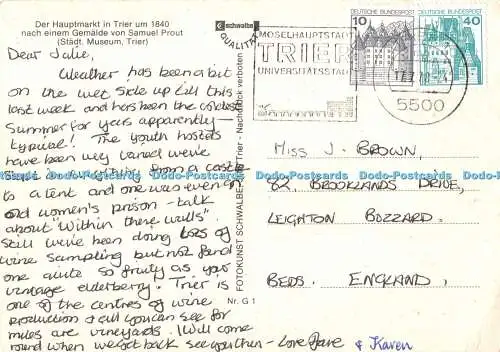 Der Hauptmarkt in Trier um 1840
nach einem Gemälde von Samuel Prout
(Städt. Museum, Trier)
schwalbe
QUALITÄT
Dear Julie,
Weather has been a bit
on the wet side up till this
last week and has been the coldest
Summer for years apparently -
typical! The youth hostels
have been very varied we've
from a castle
to a tent and one was even an
old women's prison - talk
about "Within these walls"
Still we've been doing lots of
wine sampling but not found
one quite so fruity as your
vintage elderberry. Trier is
one of the centres of wine
production & all you can see for
miles are vineyards. Will come
round when we get back see you then - Love Dave & Karen
FOTOKUNST SCHWALBE Trier - Nachdruck verboten
Nr. G 1
MOSELHAUPTSTADT
TRIER
UNIVERSITÄTSSTADT
10 DEUTSCHE BUNDESPOST
DEUTSCHE BUNDESPOST 40
5500
MISS J. BROWN,
82, BROOKLANDS DRIVE,
LEIGHTON BUZZARD.
BEDS. ENGLAND.
Dodo-Postcards Dodo-Postcards Dodo-Postcards Dodo-Postcards Dodo-Postcards Dodo-Postcards